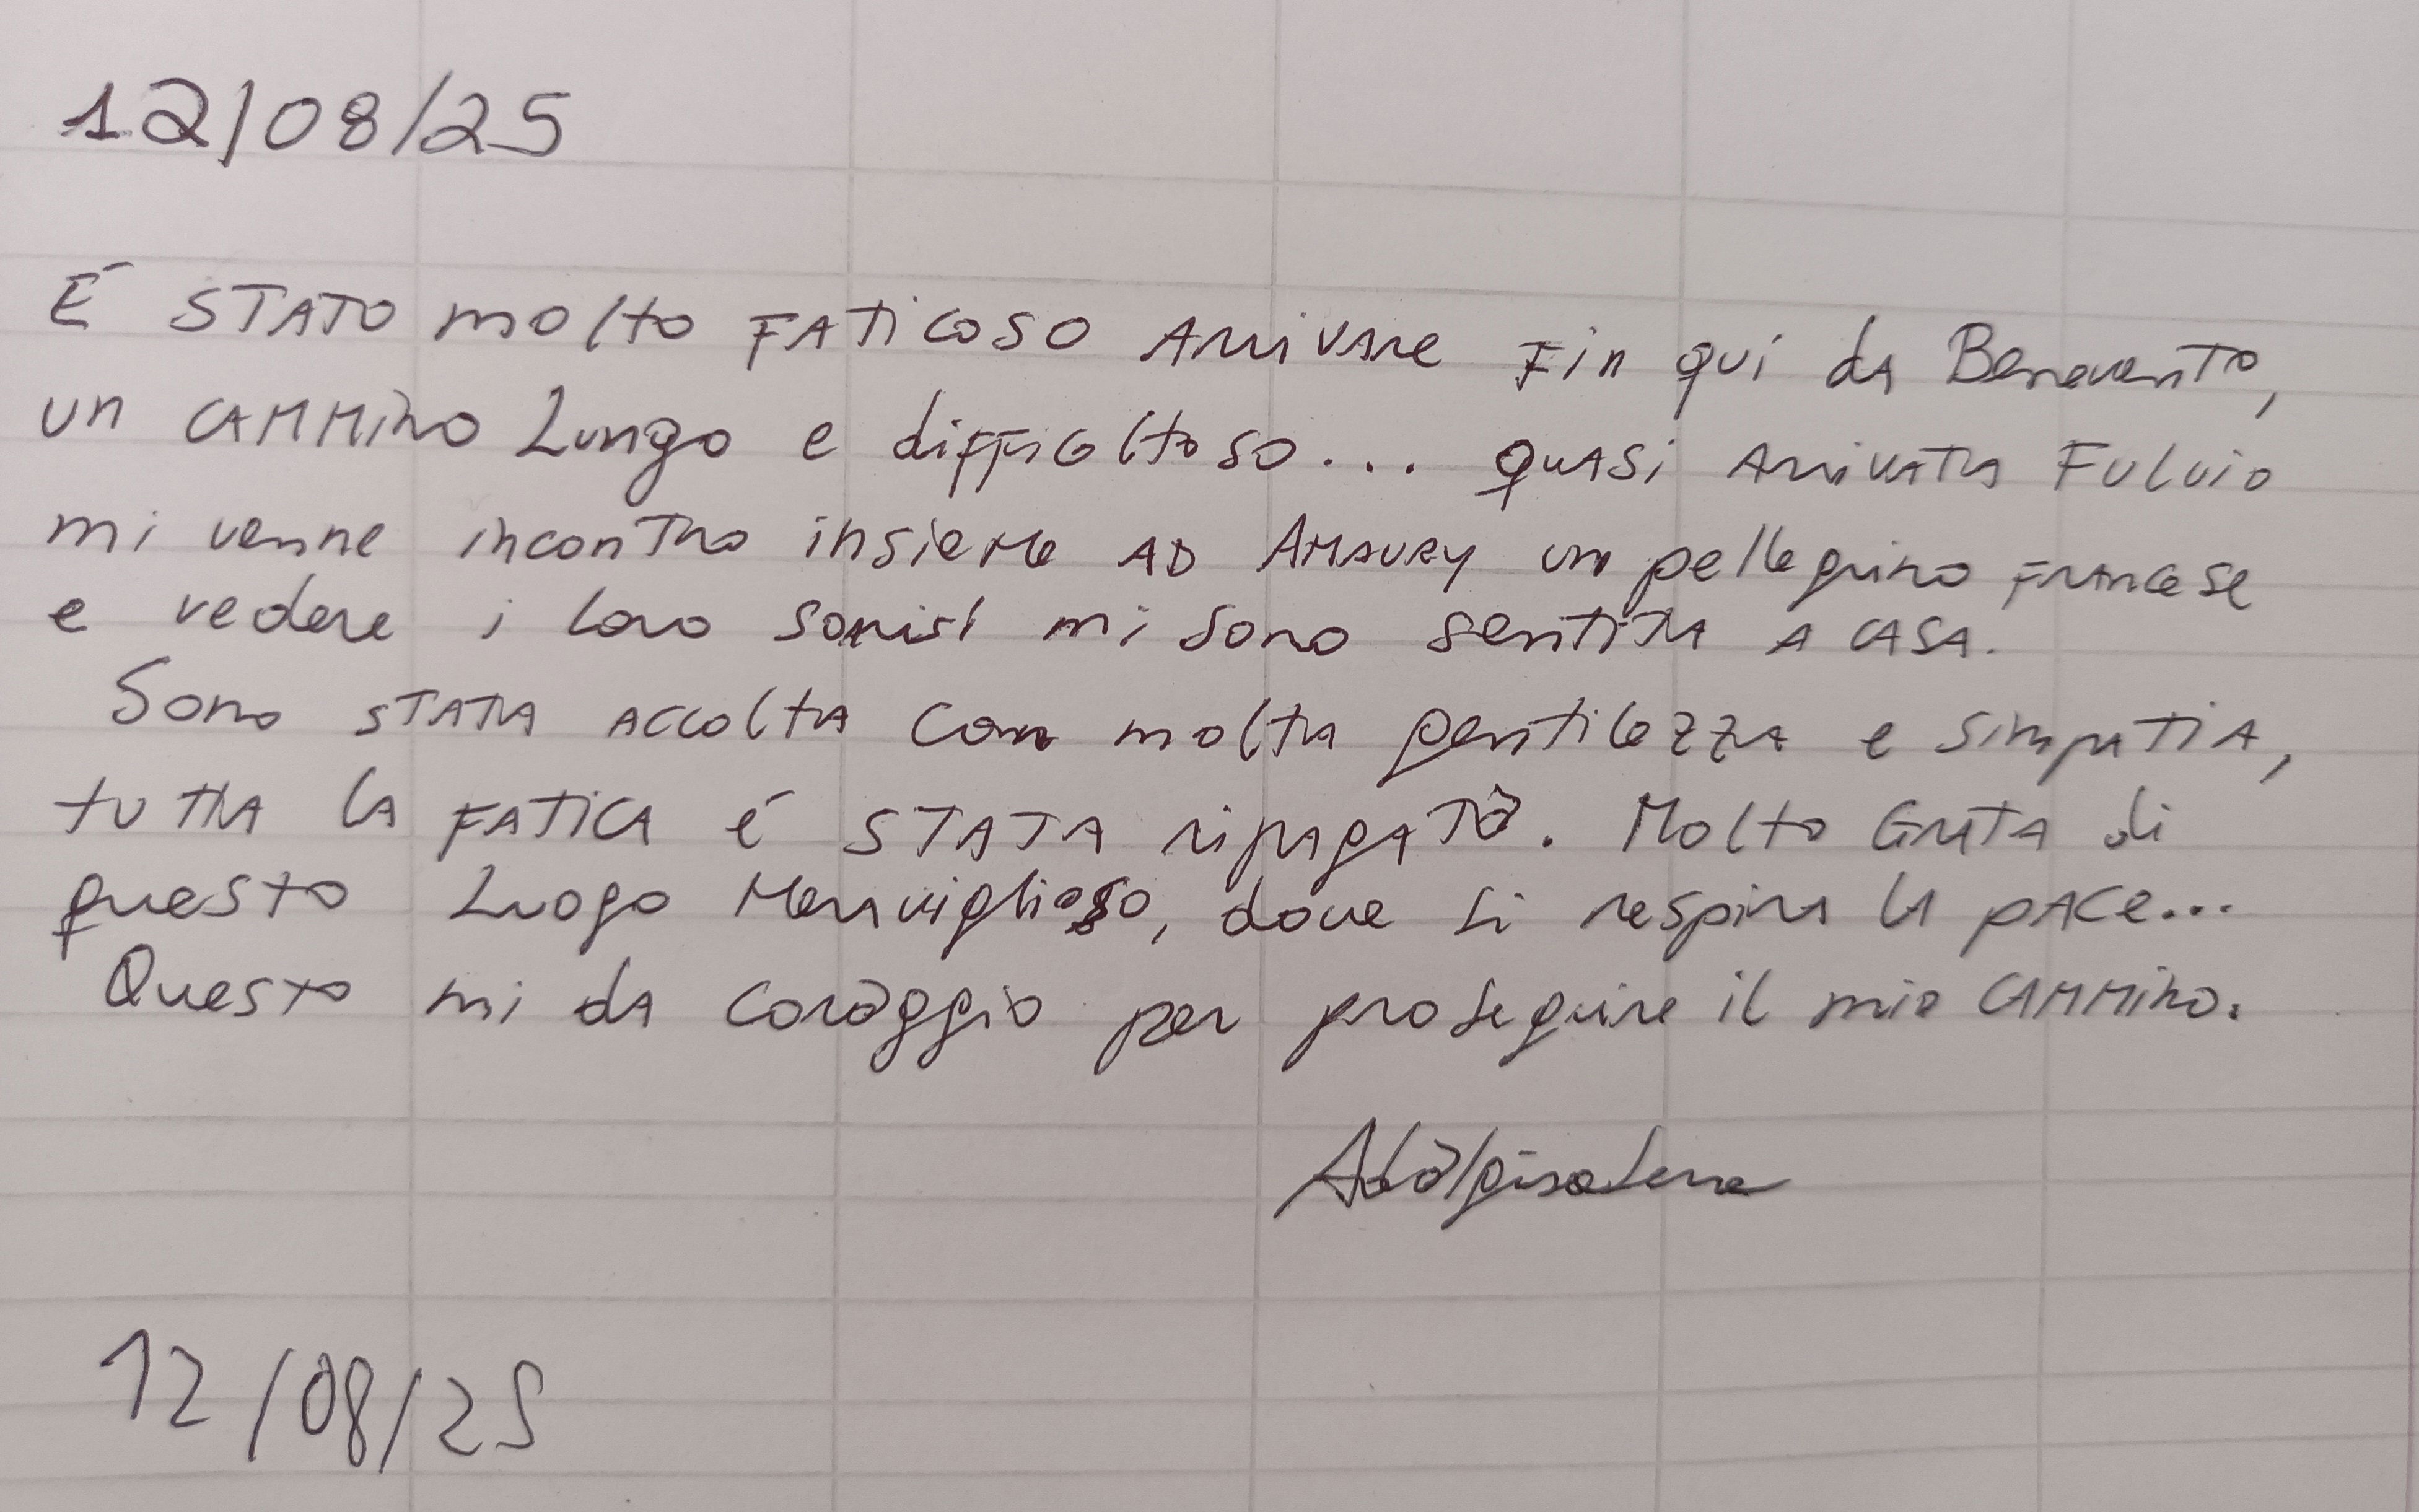 12/08/25
É STATO molto FATicoso ARRivARe Fin qui dA Benevento,
un CAMMino Lungo e difficoltoso... quASi ARRivATA Fulvio
mi venne incontro insieme AD AMAURY un pellegrino FRANcese
e vedere i loro sorrisi mi sono sentitA A CASA.
Sono STATA AccoltA con moltA gentilezzA e simpATiA,
tuttA lA FATICA é STATA ripAgATa. Molto GRATA di
questo Luogo MerAviglioso, dove si respirA lA pACe...
Questo mi dA coraggio per proseguire il mio CAMMino.
12/08/25